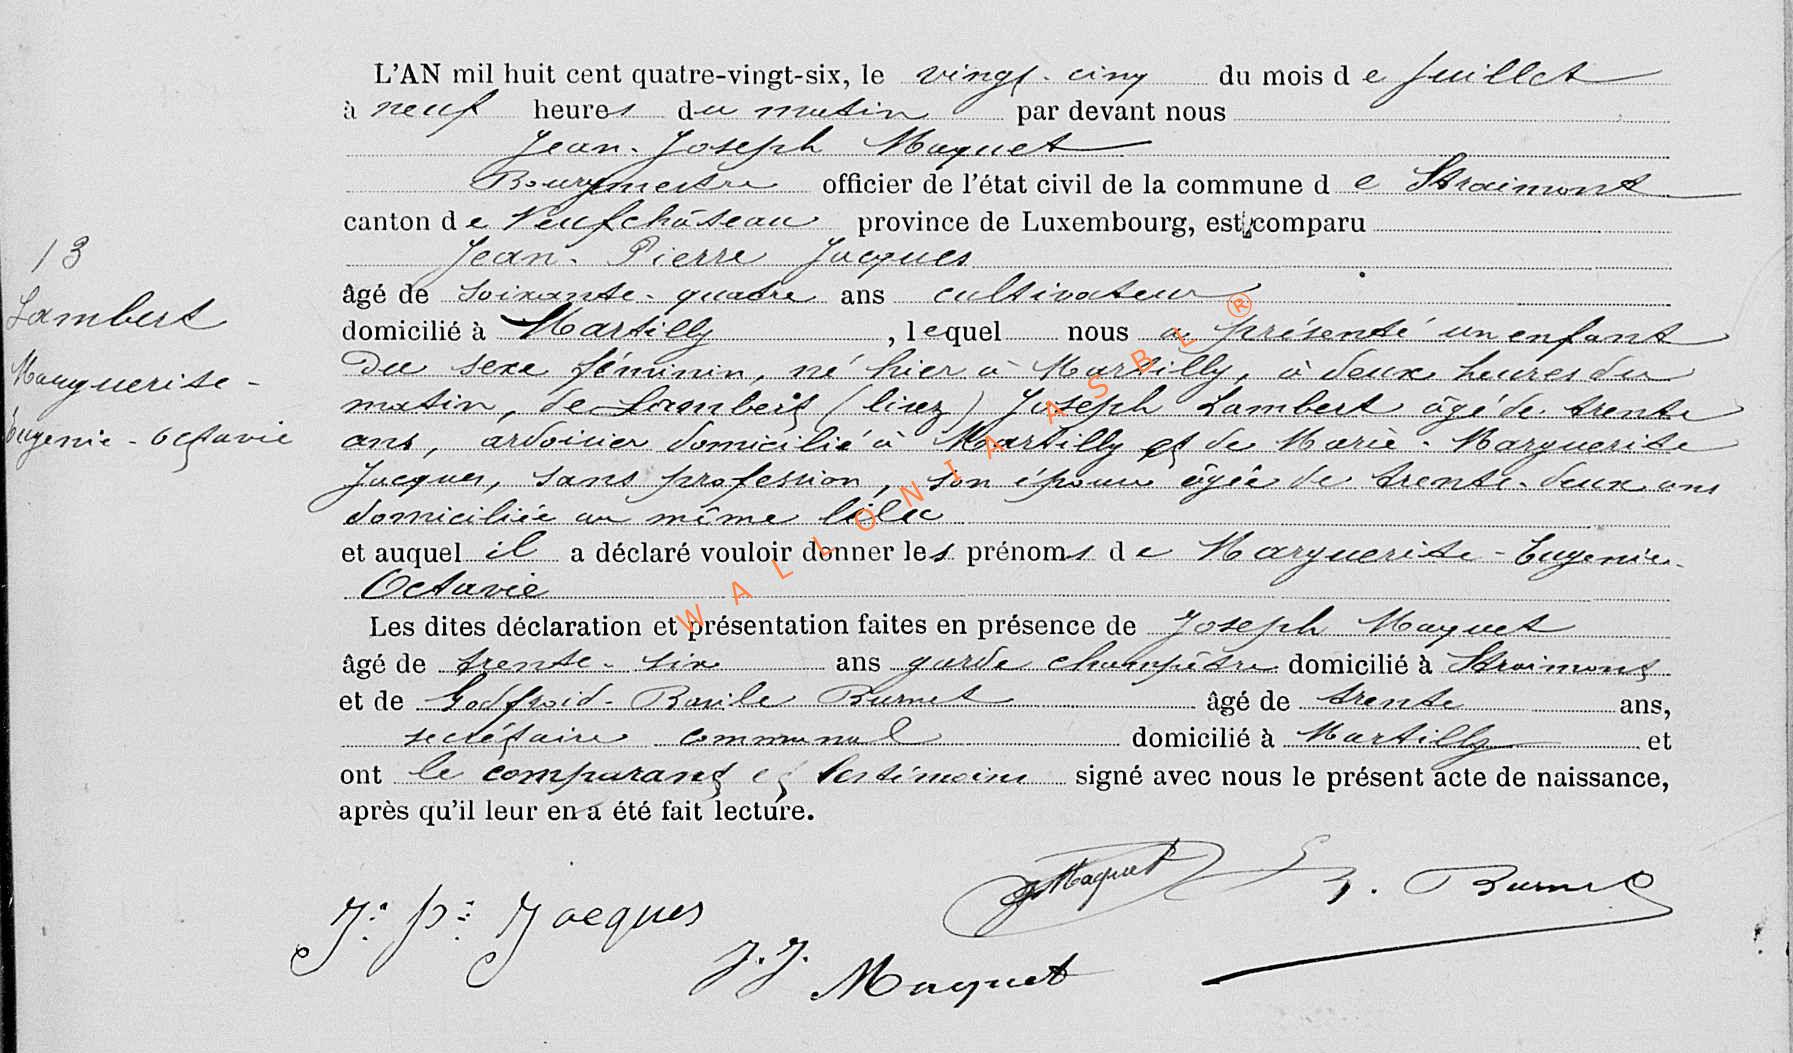 L'AN mil huit cent quatre-vingt-six, le vingt-cinq du mois de Juillet
à neuf heures du matin par devant nous
Jean-Joseph Maquet
Bourgmestre officier de l'état civil de la commune de Straimont
canton de Neufchâteau province de Luxembourg, est comparu
Jean-Pierre Jacques
âgé de soixante-quatre ans cultivateur
domicilié à Martilly, lequel nous a présenté un enfant
du sexe féminin, né hier à Martilly, à deux heures du
matin, de Lambert (lisez) Joseph Lambert âgé de trente
ans, ardoisier domicilié à Martilly et de Marie-Marguerite
Jacques, sans profession, son épouse âgée de trente-deux ans
domiciliée au même lieu
et auquel il a déclaré vouloir donner les prénoms de Marguerite-Eugenie-
Octavie
Les dites déclaration et présentation faites en présence de Joseph Maquet
âgé de trente-six ans garde champêtre domicilié à Straimont
et de Godfroid-Basile Burnet âgé de trente ans,
secrétaire communal domicilié à Martilly et
ont le comparant et les témoins signé avec nous le présent acte de naissance,
après qu'il leur en a été fait lecture.
13
Lambert
Marguerite-
Eugenie-Octavie
J. Maquet
Burnet
J. P. Jacques
J. J. Maquet
WALLONIA ASBL ®